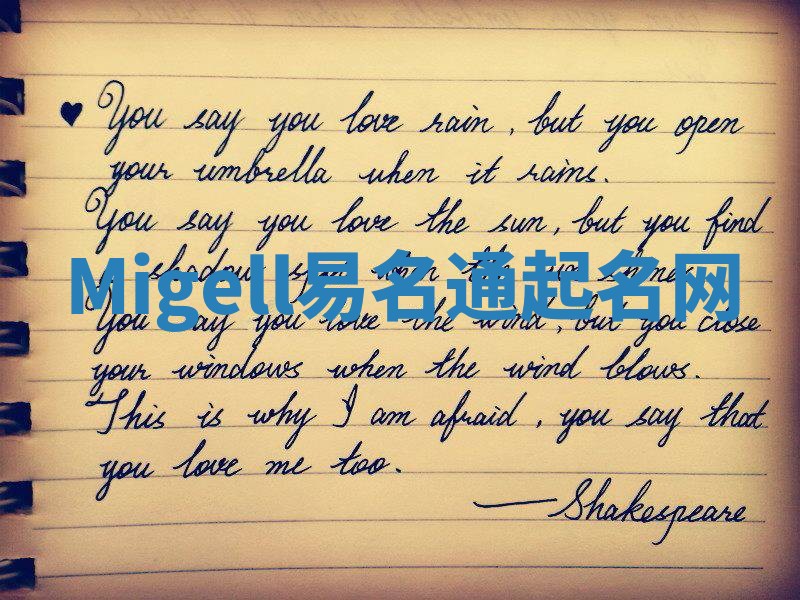 ♥ You say you love rain, but you open
your umbrella when it rains.
You say you love the sun, but you find
a shadow spot when the sun shines.
Migell易名通起名网
You say you love the wind, but you close
your windows when the wind blows.
This is why I am afraid, you say that
you love me too.
— Shakespeare